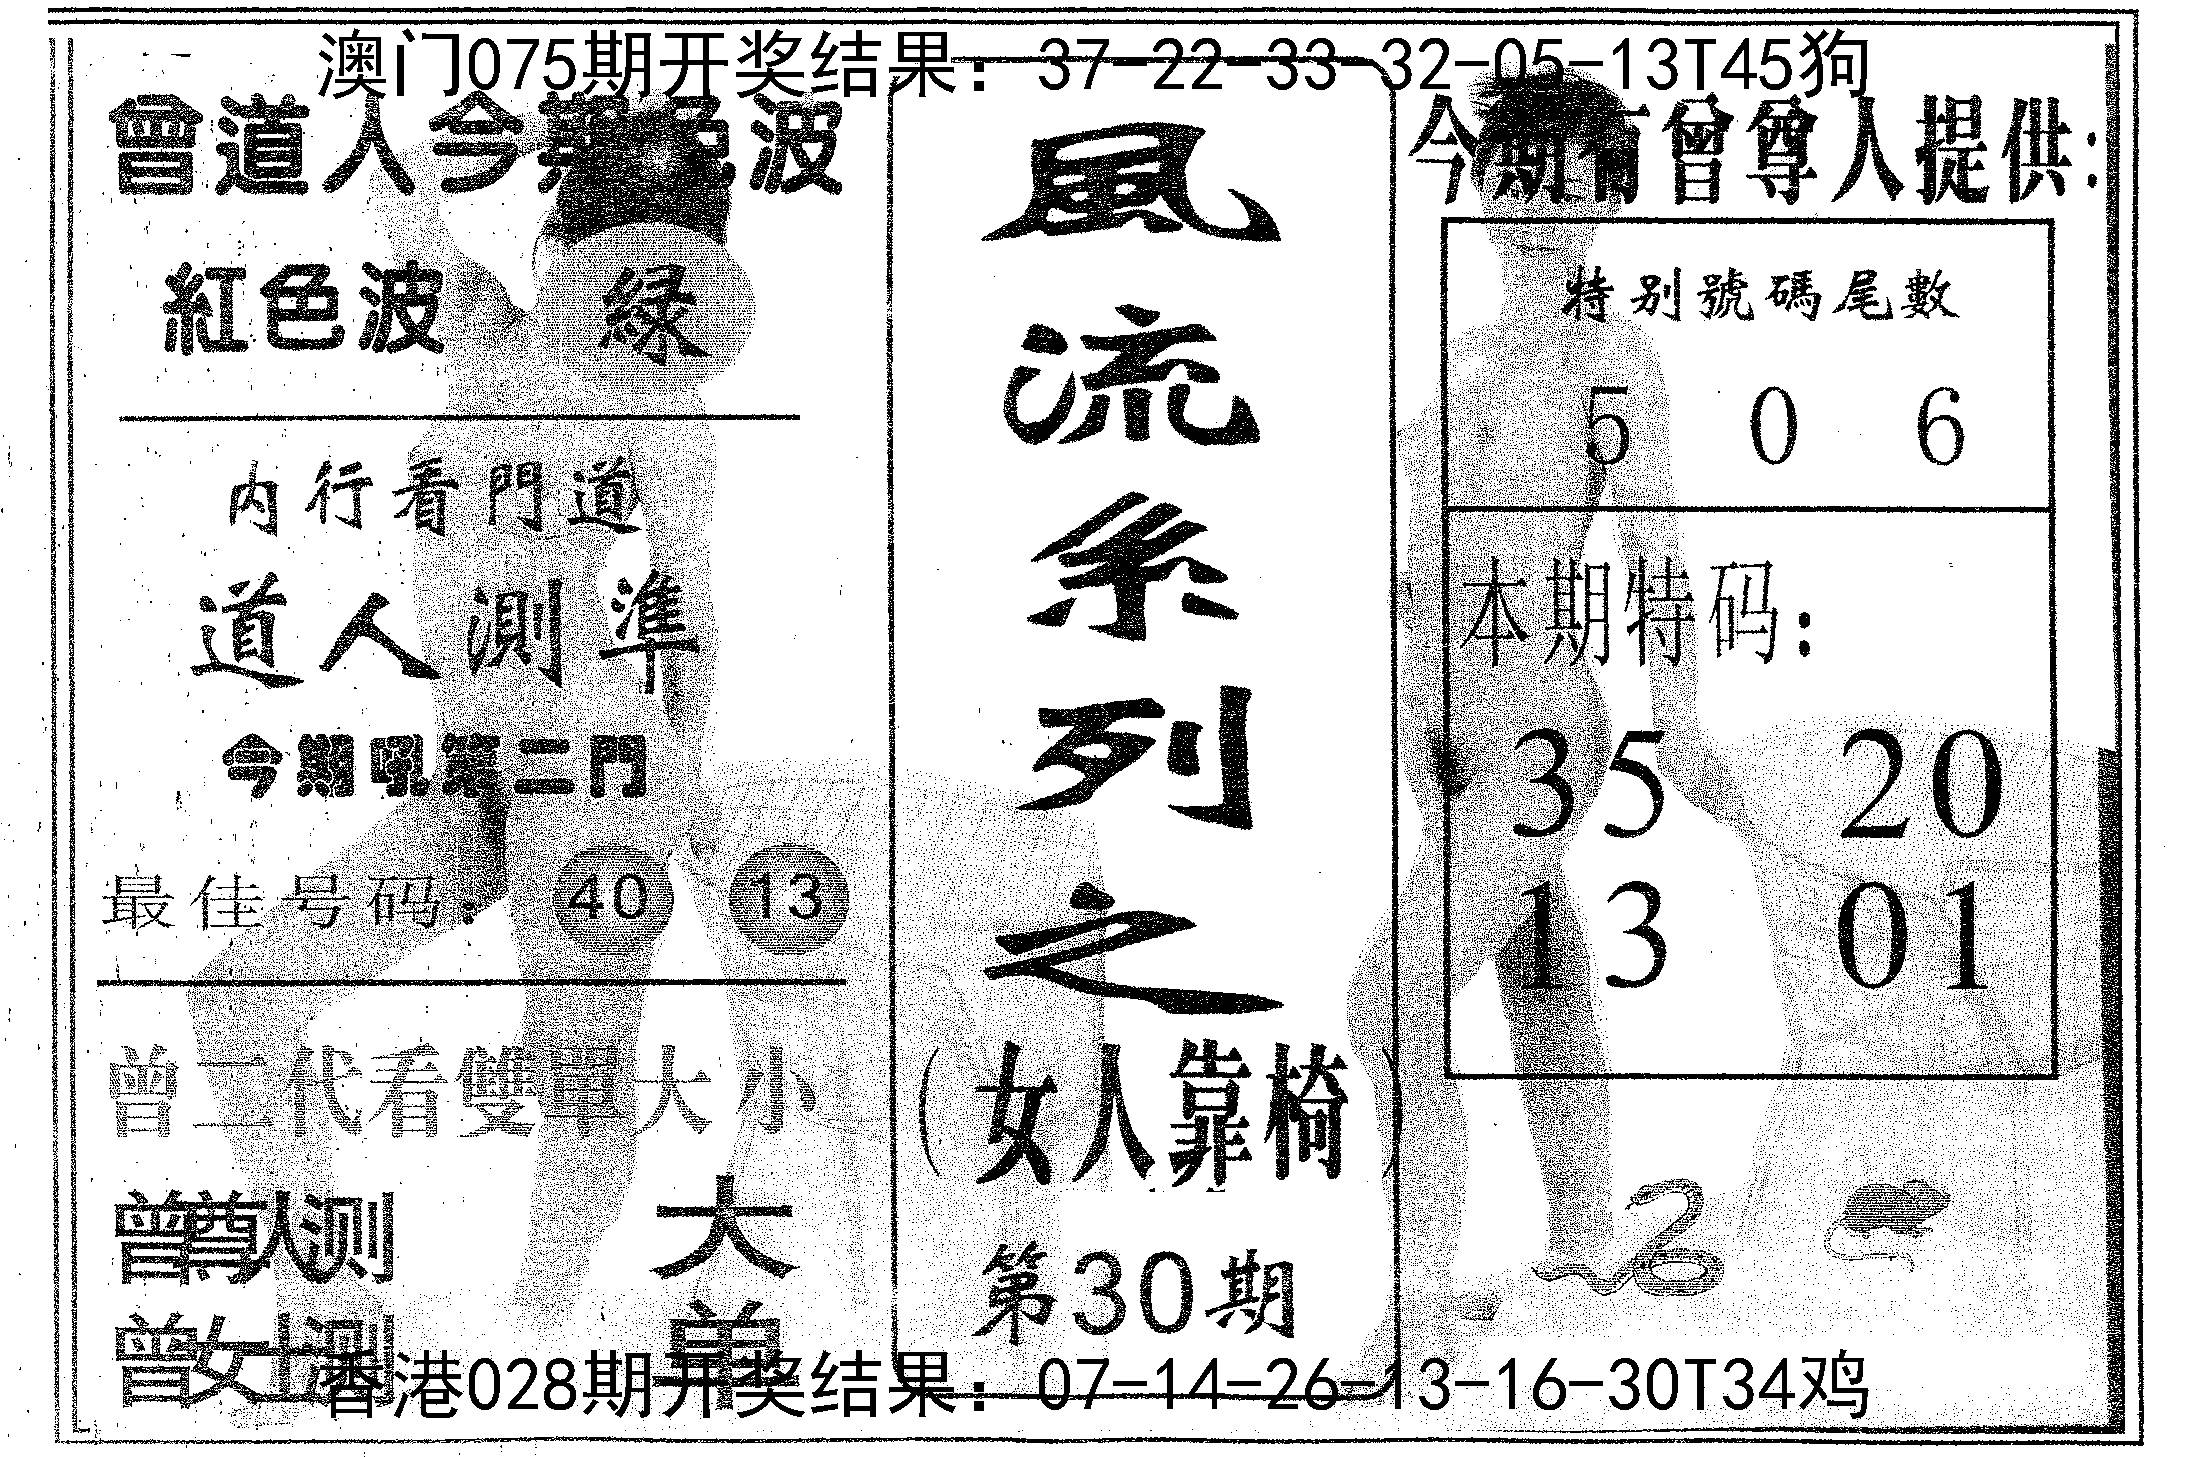 澳门075期开奖结果：37-22-33-32-05-13T45狗
曾道人今期色波
紅色波 緑
内行看門道
道人測準
今期吼第二門
最佳号码：40 13
曾二代看雙單大小
曾尊人测 大
曾女士测 单
風流系列之
（女人靠椅）
第30期
今期有曾尊人提供：
特别號碼尾數
5 0 6
本期特码：
35 20
13 01
香港028期开奖结果：07-14-26-13-16-30T34鸡